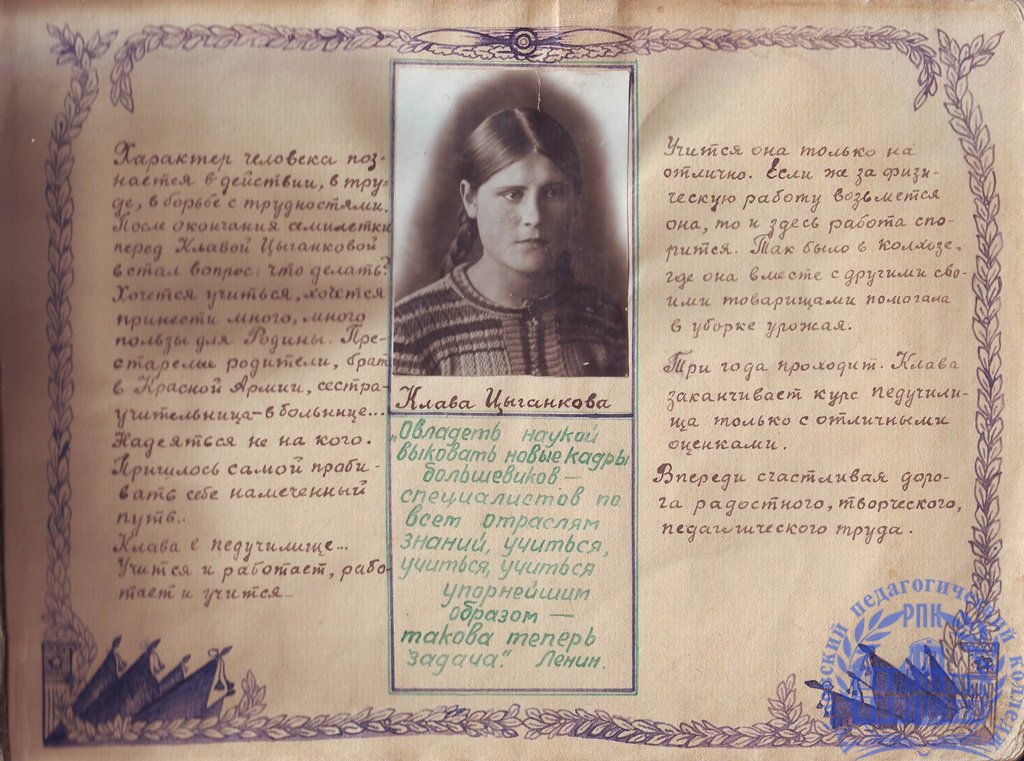 Характер человека поз-
нается в действии, в тру-
де, в борьбе с трудностями.
После окончания семилетки
перед Клавой Цыганковой
встал вопрос: что делать?
Хочется учиться, хочется
принести много, много
пользы для Родины. Пре-
старелые родители, брат
в Красной Армии, сестра-
учительница-в больнице...
Надеяться не на кого.
Пришлось самой проби-
вать себе намеченный
путь..
Клава в педучилище...
Учится и работает, рабо-
тает и учится...
Клава Цыганкова
„Овладеть наукой
выковать новые кадры
большевиков —
специалистов по
всем отраслям
знаний, учиться,
учиться, учиться
упорнейшим
образом —
такова теперь
задача". Ленин.
Учится она только на
отлично. Если же за физи-
ческую работу возьмется
она, то и здесь работа спо-
рится. Так было в колхозе,
где она вместе с другими сво-
ими товарищами помогала
в уборке урожая.
Три года проходит. Клава
заканчивает курс педучили-
ща только с отличными
оценками.
Впереди счастливая доро-
га радостного, творческого,
педагогического труда.
педагогический колледж
РПК